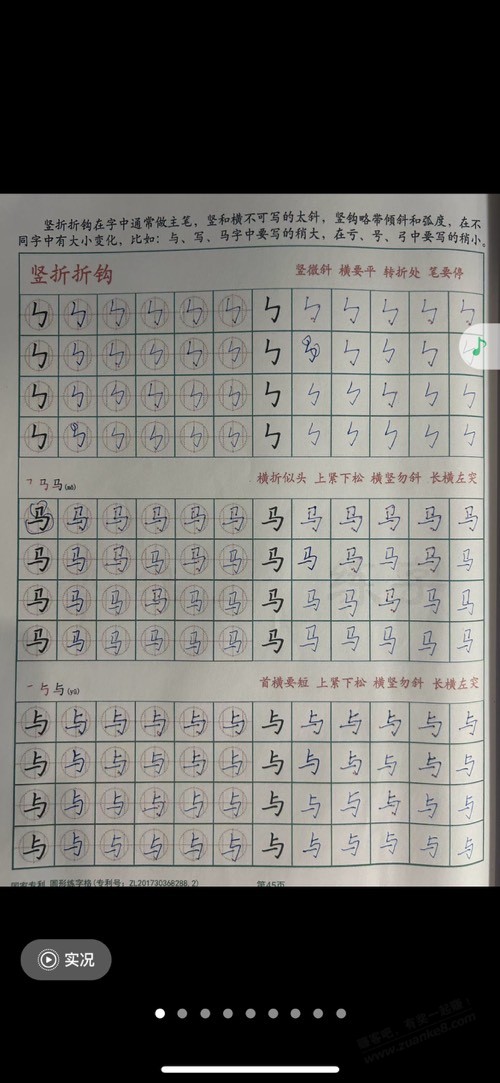 竖折折钩在字中通常做主笔，竖和横不可写的太斜，竖钩略带倾斜和弧度，在不
同字中有大小变化，比如：与、写、马字中要写的稍大，在亏、号、弓中要写的稍小。
竖折折钩 竖微斜 横要平 转折处 笔要停
㇉ ㇉ ㇉ ㇉ ㇉ ㇉ ㇉ ㇉ ㇉ ㇉ ㇉ ㇉
㇉ ㇉ ㇉ ㇉ ㇉ ㇉ ㇉ ㇉ ㇉ ㇉ ㇉
㇉ ㇉ ㇉ ㇉ ㇉ ㇉ ㇉ ㇉ ㇉ ㇉ ㇉ ㇉
㇉ ㇉ ㇉ ㇉ ㇉ ㇉ ㇉ ㇉ ㇉ ㇉ ㇉ ㇉
马(mǎ) 横折似头 上紧下松 横竖勿斜 长横左突
马 马 马 马 马 马 马 马 马 马 马 马
马 马 马 马 马 马 马 马 马 马 马 马
马 马 马 马 马 马 马 马 马 马 马 马
马 马 马 马 马 马 马 马 马 马 马 马
与(yǔ) 首横要短 上紧下松 横竖勿斜 长横左突
与 与 与 与 与 与 与 与 与 与 与 与
与 与 与 与 与 与 与 与 与 与 与 与
与 与 与 与 与 与 与 与 与 与 与 与
与 与 与 与 与 与 与 与 与 与 与 与
国家专利 圆形练字格(专利号：ZL201730368288.2) 第45页
实况
www.zuanke8.com